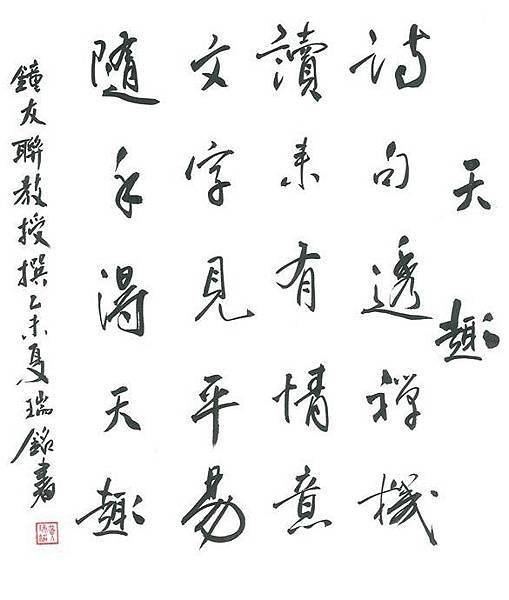 天趣
詩句透禪機
讀來有情意
文字見平易
隨手得天趣
鐘友聯教授撰乙未夏瑞銘書